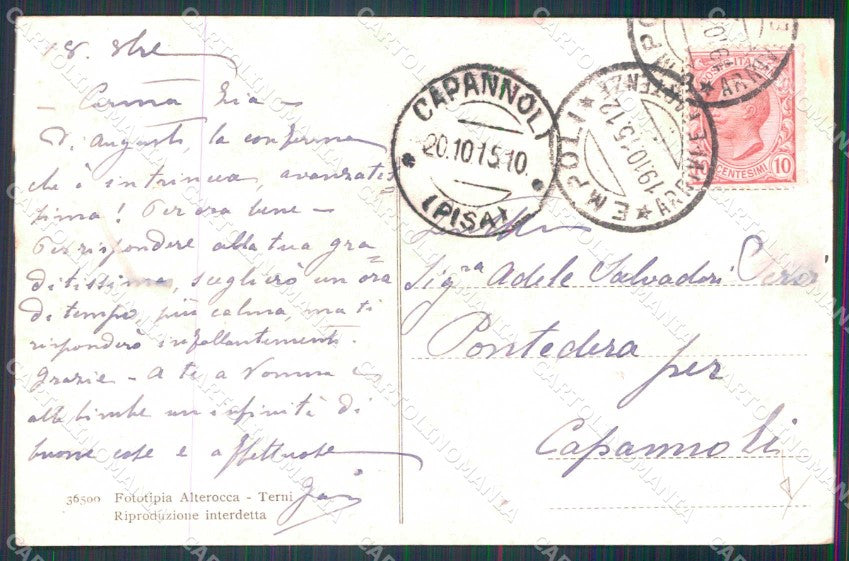 18. 8bre
- Carma Zia -
D. Augusto, la conferma
che è intrinca, avanzatis
sima! Per ora bene -
Per rispondere alla tua gra
ditissima, sceglierò un ora
di tempo, più calma, ma ti
risponderò infallantementi.
Grazie - A te a Nonna e
alle bimbe un infinità di
buone cose e affettuose
36500 Fototipia Alterocca - Terni
Riproduzione interdetta
CAPANNOLI
20.10.15.10.
(PISA)
EMPOLI
19.10.15.12
ARRIVI E PARTENZE
CENTESIMI 10
Sig.ra Adele Salvadori
Pontedera per
Capannoli
CARTOLINOMANIA